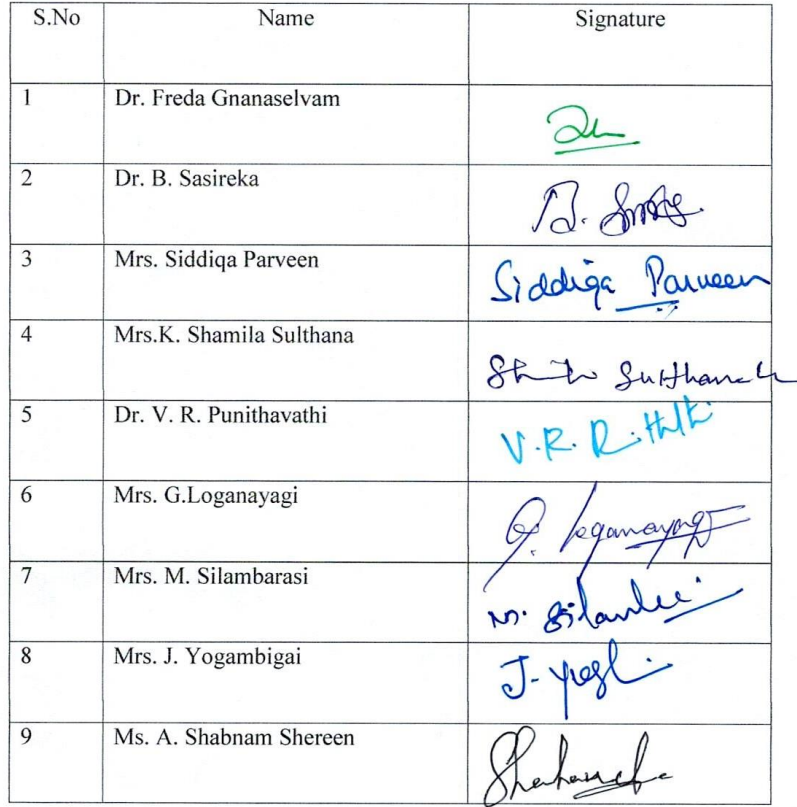 S.No Name Signature
1 Dr. Freda Gnanaselvam
2 Dr. B. Sasireka B.
3 Mrs. Siddiqa Parveen Siddiqa Parveen
4 Mrs.K. Shamila Sulthana Sulthana
5 Dr. V. R. Punithavathi V.R.
6 Mrs. G.Loganayagi G. Loganayagi
7 Mrs. M. Silambarasi M.
8 Mrs. J. Yogambigai J.
9 Ms. A. Shabnam Shereen